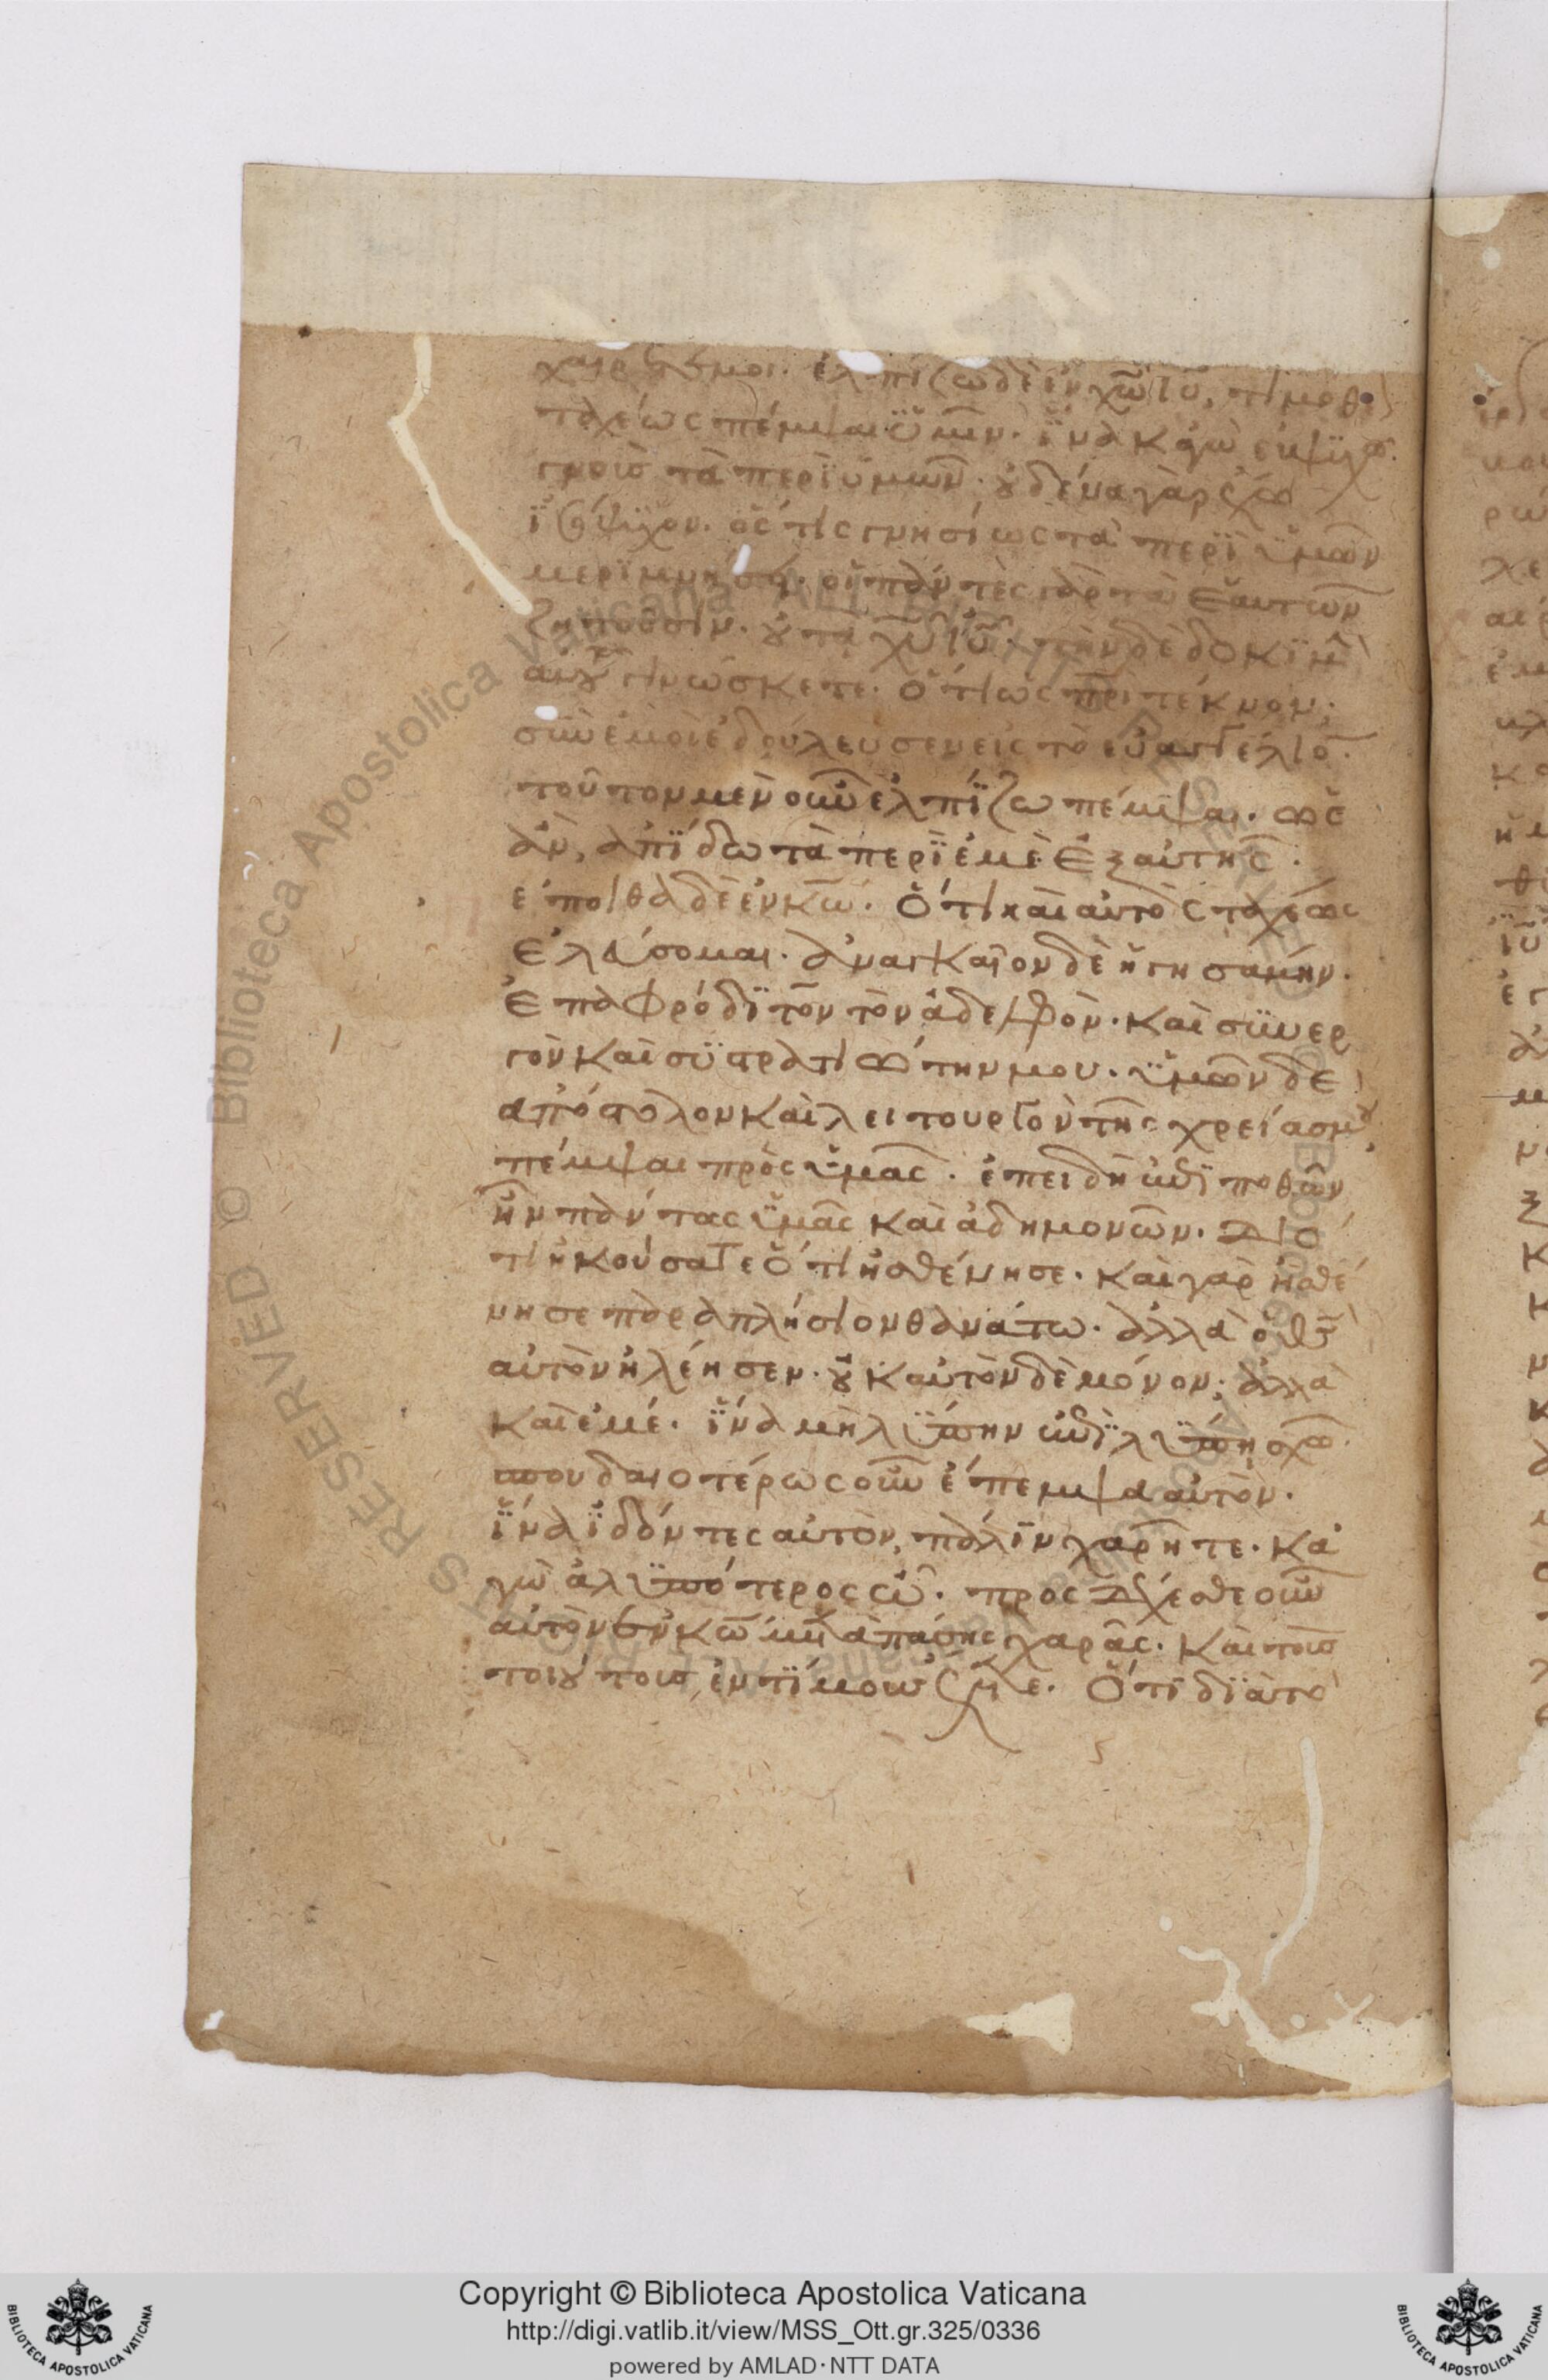 χαίρετέ μοι. ἐλπίζω δὲ ἐν χω ιυ, τιμόθε
ταχέως πέμψαι ϋμῖν. ἵνα κἀγὼ εὐψυχῶ.
γνοὺσ τὰ περὶ ϋμῶν. οὐδένα γὰρ ἔχω
ϊσόψυχον. ὅς τις γνησίως τὰ περὶ ϋμῶν
μεριμνήσει. οἱ πάντες γὰρ τὰ ἑαυτῶν
ζητοῦσιν. οὐ τὰ χυ ιυ. τὴν δὲ δοκιμὴ
αὐτοῦ γινώσκετε. ὅτι ως πρι τέκνον.
σὺν ἐμοὶ ἐδούλευσεν εἰς τὸ εὐαγγέλιο.
τοῦτον μὲν οὖν ἐλπίζω πέμψαι. ὡς
ἂν, ἀπίδω τὰ περὶ ἐμὲ ἐξαυτῆς.
ἐποιθα δὲ ἐν κω. ὅτι και αὐτὸς ταχέως
ἐλεύσομαι. ἀναγκαῖον δὲ ἡγησαμην.
Ἐπαφρόδιτον τὸν ἀδελφὸν. καὶ συνερ
γὸν καὶ συστρατιώτην μου. ϋμῶν δὲ
ἀπόστολον καὶ λειτουργὸν τῆς χρείασ μου
πέμψαι πρὸς ϋμᾶς. ἐπειδὴ ἐπϊποθῶν
ἦν πάντας ϋμᾶς καὶ ἀδημονῶν. διό
τι ἠκούσατε ὅτι ἠσθένησε. καὶ γαρ ἠσθέ
νησε παραπλήσιον θανάτω. ἀλλὰ ὁ θς
αὐτὸν ἠλέησεν. οὐκ αὐτὸν δὲ μόνον. ἀλλὰ
καὶ ἐμέ. ἵνα μὴ λύπην ἐπὶ λύπη σχῶ.
σπουδαιοτέρως οὖν ἔπεμψα αὐτὸν.
ἵνα ϊδόντες αὐτὸν, πάλιν χαρῆτε. κἀ
γὼ ἀλυπότερος ὦ. προσδέχεσθε οὖν
αὐτὸν ἐν κω μετὰ πάσης χαρᾶς. καὶ τοὺσ
τοιούτουσ ἐντίμουσ ἔχετε. Ὅτι διὰ τὸ
Copyright © Biblioteca Apostolica Vaticana
http://digi.vatlib.it/view/MSS_Ott.gr.325/0336
powered by AMLAD·NTT DATA